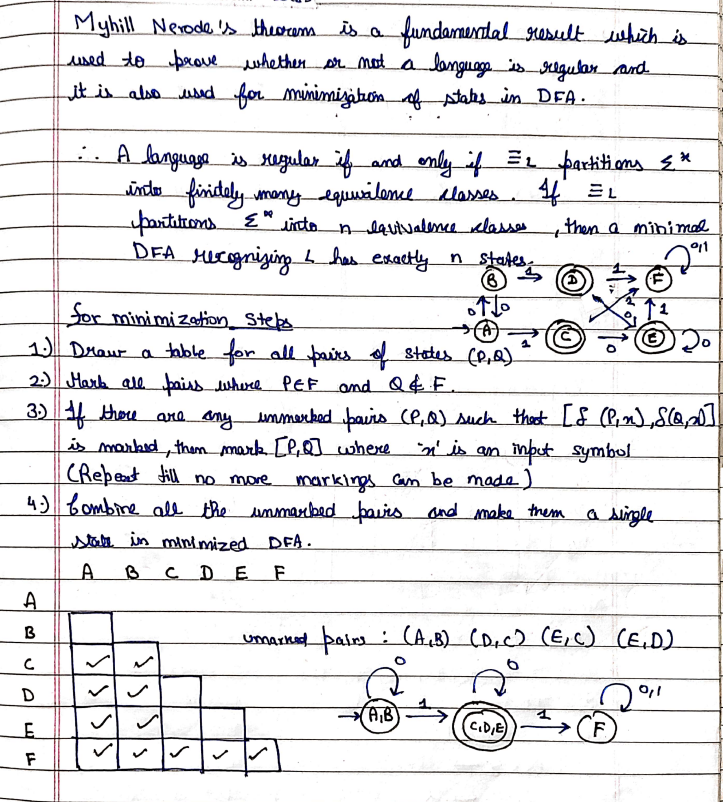 Myhill Nerode's theorem is a fundamental result which is
used to prove whether or not a language is regular and
it is also used for minimization of states in DFA.
∴ A language is regular if and only if ≡L partitions Σ*
into finitely many equivalence classes. If ≡L
partitions Σ* into n equivalence classes, then a minimal
DFA recognizing L has exactly n states.
B 1 D 1 F 0,1
0 0 1 0 1
A 1 C 0 E 0
for minimization steps
1.) Draw a table for all pairs of states (P,Q)
2.) Mark all pairs where P∈F and Q∉F.
3.) If there are any unmarked pairs (P,Q) such that [δ(P,x),δ(Q,x)]
is marked, then mark [P,Q] where 'x' is an input symbol
(Repeat till no more markings can be made)
4.) Combine all the unmarked pairs and make them a single
state in minimized DFA.
A B C D E F
A
B
umarked pairs : (A,B) (D,C) (E,C) (E,D)
C ✓ ✓
D ✓ ✓
E ✓ ✓
F ✓ ✓ ✓ ✓ ✓
0 0 0,1
A,B 1 C,D,E 1 F